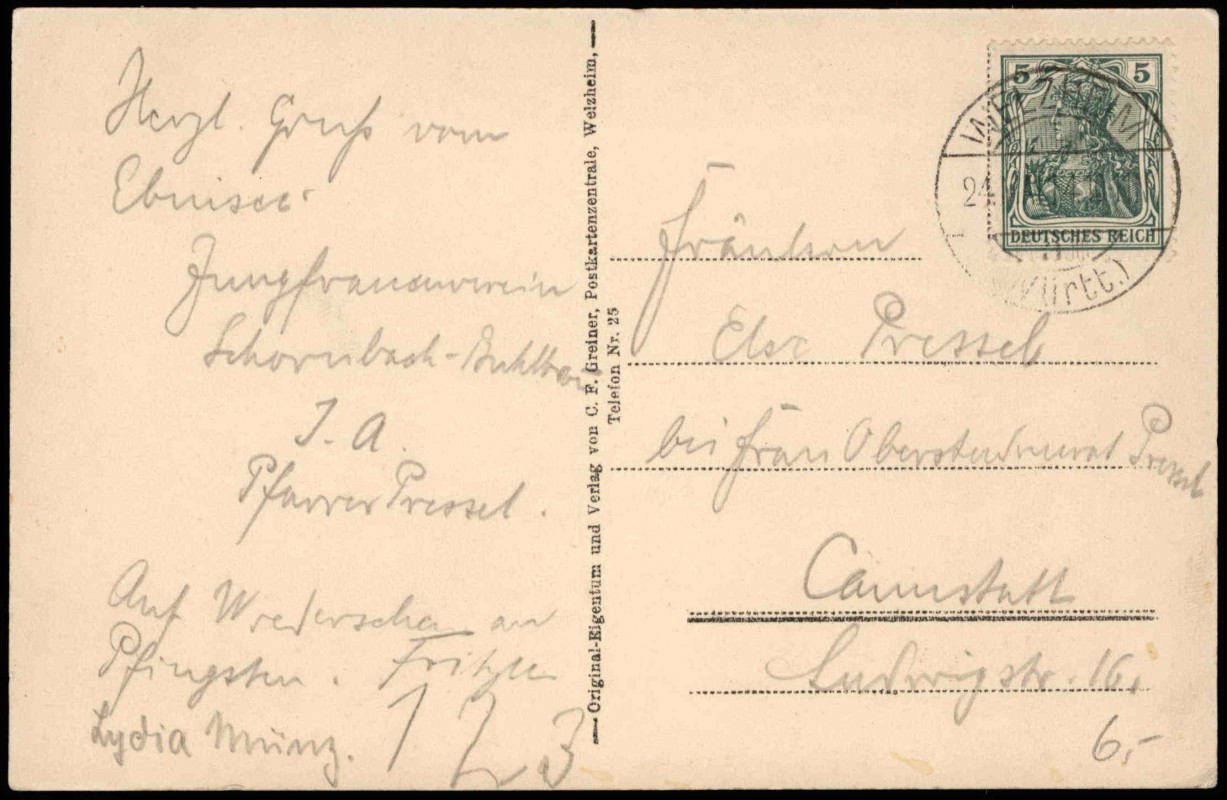 Herzl. Gruß vom
Ebnisee.
Jungfrauenverein
Schornbach-Buhlbronn
J. A.
Pfarrer Pressel.
Auf Wiedersehen an
Pfingsten. Fritzle
Lydia Münz.
1 2 3
—Original-Eigentum und Verlag von C. F. Greiner, Postkartenzentrale, Welzheim,—
Telefon Nr. 25
5 5
DEUTSCHES REICH
WELZHEIM
24
(Württ.)
Fräulein
Else Pressel
bei Frau Oberstudienrat Pressel
Cannstatt
Ludwigstr. 16.
6,-